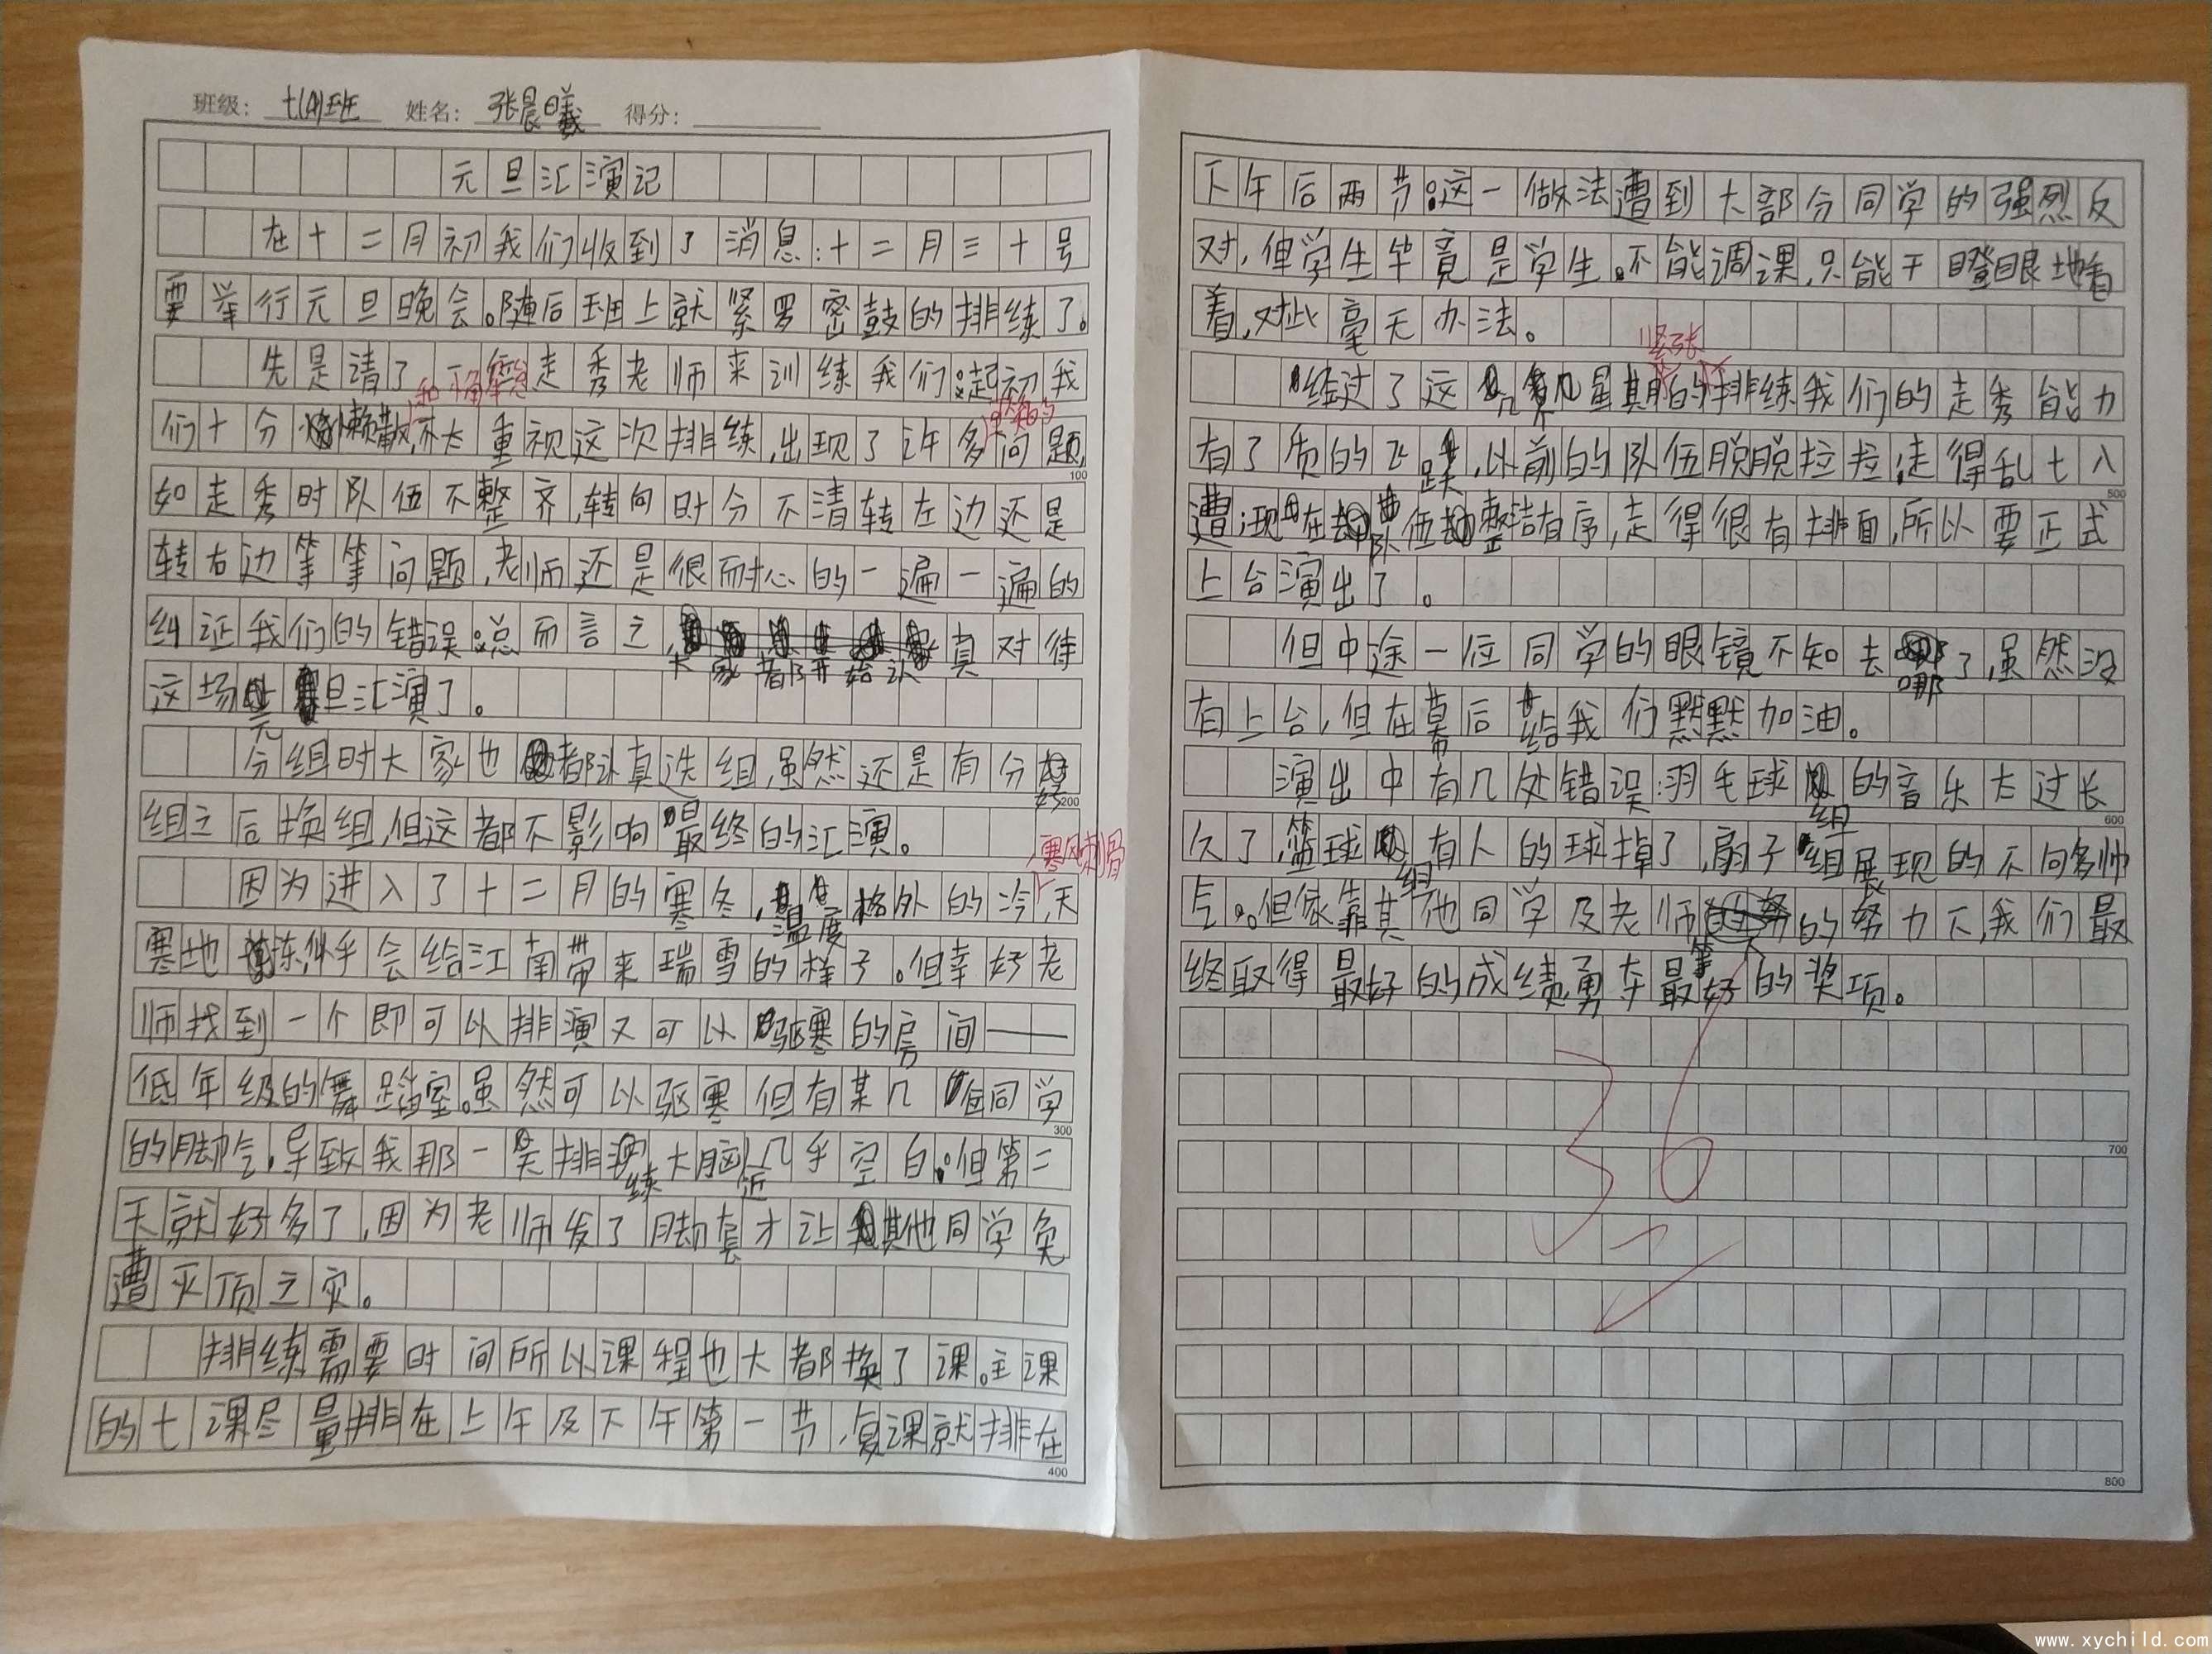 班级：七(4)班 姓名：张晨曦 得分：
元旦汇演记
在十二月初我们收到了消息：十二月三十号
要举行元旦晚会。随后班上就紧罗密鼓的排练了。
先是请了一位走秀老师来训练我们。起初我
们十分懒散，不太重视这次排练，出现了许多问题，
100
如走秀时队伍不整齐，转向时分不清转左边还是
转右边等等问题，老师还是很耐心的一遍一遍的
纠证我们的错误。总而言之，大家都开始认真对待
这场元旦汇演了。
分组时大家也都认真选组，虽然还是有分好
200
组之后换组，但这都不影响最终的汇演。
寒风刺骨
因为进入了十二月的寒冬，温度格外的冷，天
寒地冻，似乎会给江南带来瑞雪的样子。但幸好老
师找到一个即可以排演又可以驱寒的房间——
低年级的舞蹈室。虽然可以驱寒但有某几位同学
300
的脚气，导致我那一天排练大脑近几乎空白。但第二
天就好多了，因为老师发了脚套才让其他同学免
遭灭顶之灾。
排练需要时间所以课程也大都换了课。主课
的七课尽量排在上午及下午第一节，复课就排在
400
下午后两节。这一做法遭到大部分同学的强烈反
对，但学生毕竟是学生。不能调课，只能干瞪眼地看
着，对此毫无办法。
紧张
经过了这几个星期的排练我们的走秀能力
有了质的飞跃，以前的队伍脱脱拉拉，走得乱七八
500
遭；现在队伍整洁有序，走得很有排面，所以要正式
上台演出了。
但中途一位同学的眼镜不知去哪了，虽然没
有上台，但在幕后给我们默默加油。
演出中有几处错误：羽毛球组的音乐太过长
600
久了，篮球组有人的球掉了，扇子组展现的不向多帅
气。但依靠其他同学及老师的努力下，我们最
终取得最好的成绩勇夺最好的奖项。
36
700
800
www.xychild.com